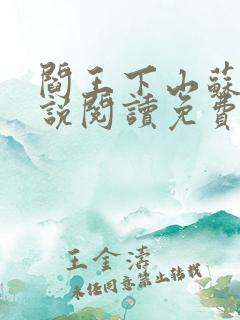 閻王下山蘇
說閱讀免費
王金濤
未經同意禁止轉載